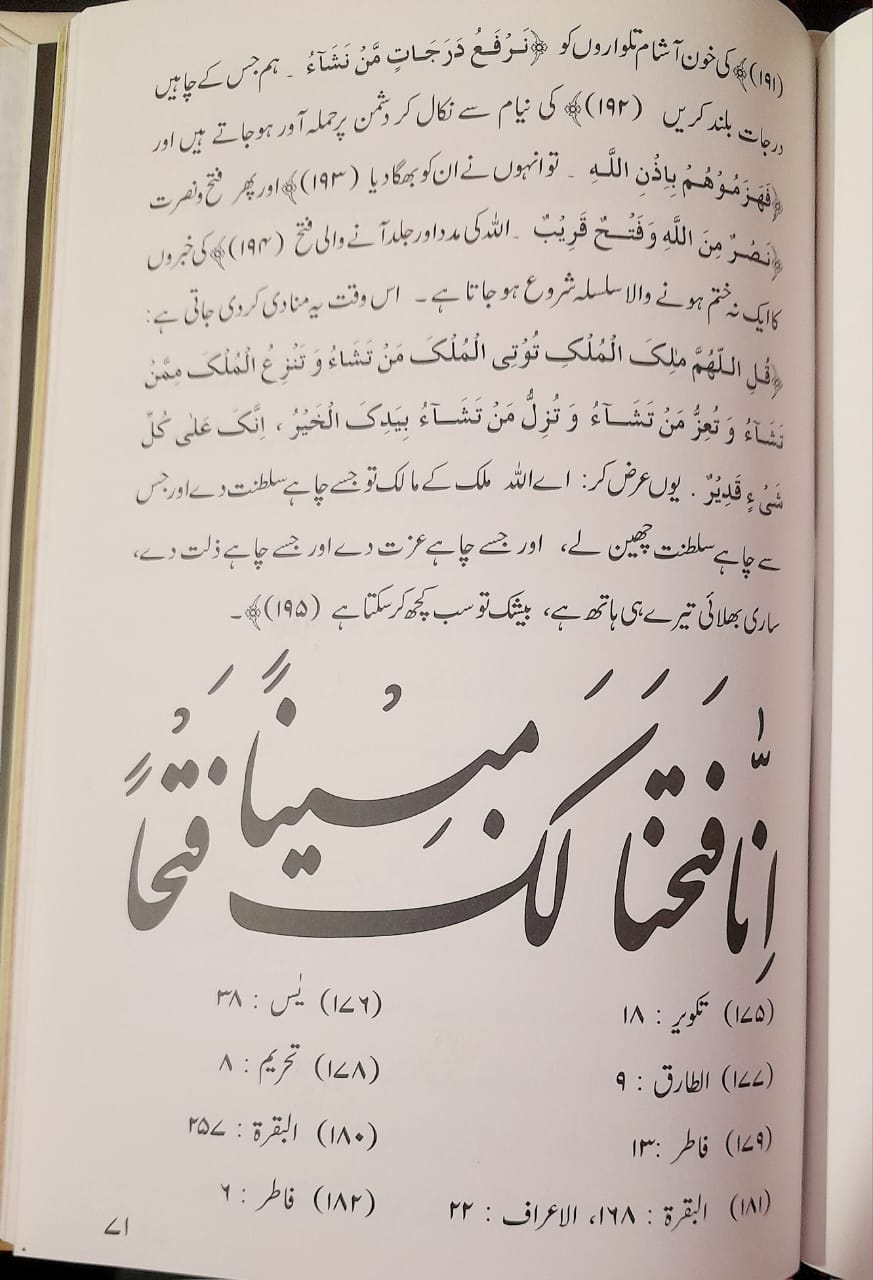 (۱۹۱)﴾ کی خون آشام تلواروں کو ﴿نَرْفَعُ دَرَجَاتٍ مَّنْ نَشَآءُ ۔ ہم جس کے چاہیں
درجات بلند کریں (۱۹۲)﴾ کی نیام سے نکال کر دشمن پر حملہ آور ہو جاتے ہیں اور
﴿فَهَزَمُوْهُمْ بِاِذْنِ اللَّهِ ۔ تو انہوں نے ان کو بھگا دیا (۱۹۳)﴾ اور پھر فتح و نصرت
﴿نَصْرٌ مِنَ اللَّهِ وَفَتْحٌ قَرِيْبٌ ۔ اللہ کی مدد اور جلد آنے والی فتح (۱۹۴)﴾ کی خبروں
کا ایک نہ ختم ہونے والا سلسلہ شروع ہو جاتا ہے ۔ اس وقت یہ منادی کر دی جاتی ہے :
﴿قُلِ اللّٰهُمَّ مٰلِکَ الْمُلْکِ تُوْتِی الْمُلْکَ مَنْ تَشَاءُ وَ تَنْزِعُ الْمُلْکَ مِمَّنْ
تَشَآءُ وَ تُعِزُّ مَنْ تَشَآءُ وَ تُزِلُّ مَنْ تَشَآءُ بِیَدِکَ الْخَیْرُ ، اِنَّکَ عَلٰی کُلِّ
شَیْءٍ قَدِیْرٌ . یوں عرض کر : اے اللہ ملک کے مالک تو جسے چاہے سلطنت دے اور جس
سے چاہے سلطنت چھین لے، اور جسے چاہے عزت دے اور جسے چاہے ذلت دے،
ساری بھلائی تیرے ہی ہاتھ ہے، بیشک تو سب کچھ کر سکتا ہے (۱۹۵)﴾ ۔
اِنَّا فَتَحْنَا لَکَ فَتْحًا مُّبِیْنًا
(۱۷۵) تکویر : ۱۸ (۱۷۶) یٰس : ۳۸
(۱۷۷) الطارق : ۹ (۱۷۸) تحریم : ۸
(۱۷۹) فاطر : ۱۳ (۱۸۰) البقرۃ : ۲۵۷
(۱۸۱) البقرۃ : ۱۶۸، الاعراف : ۲۲ (۱۸۲) فاطر : ۶
۷۱